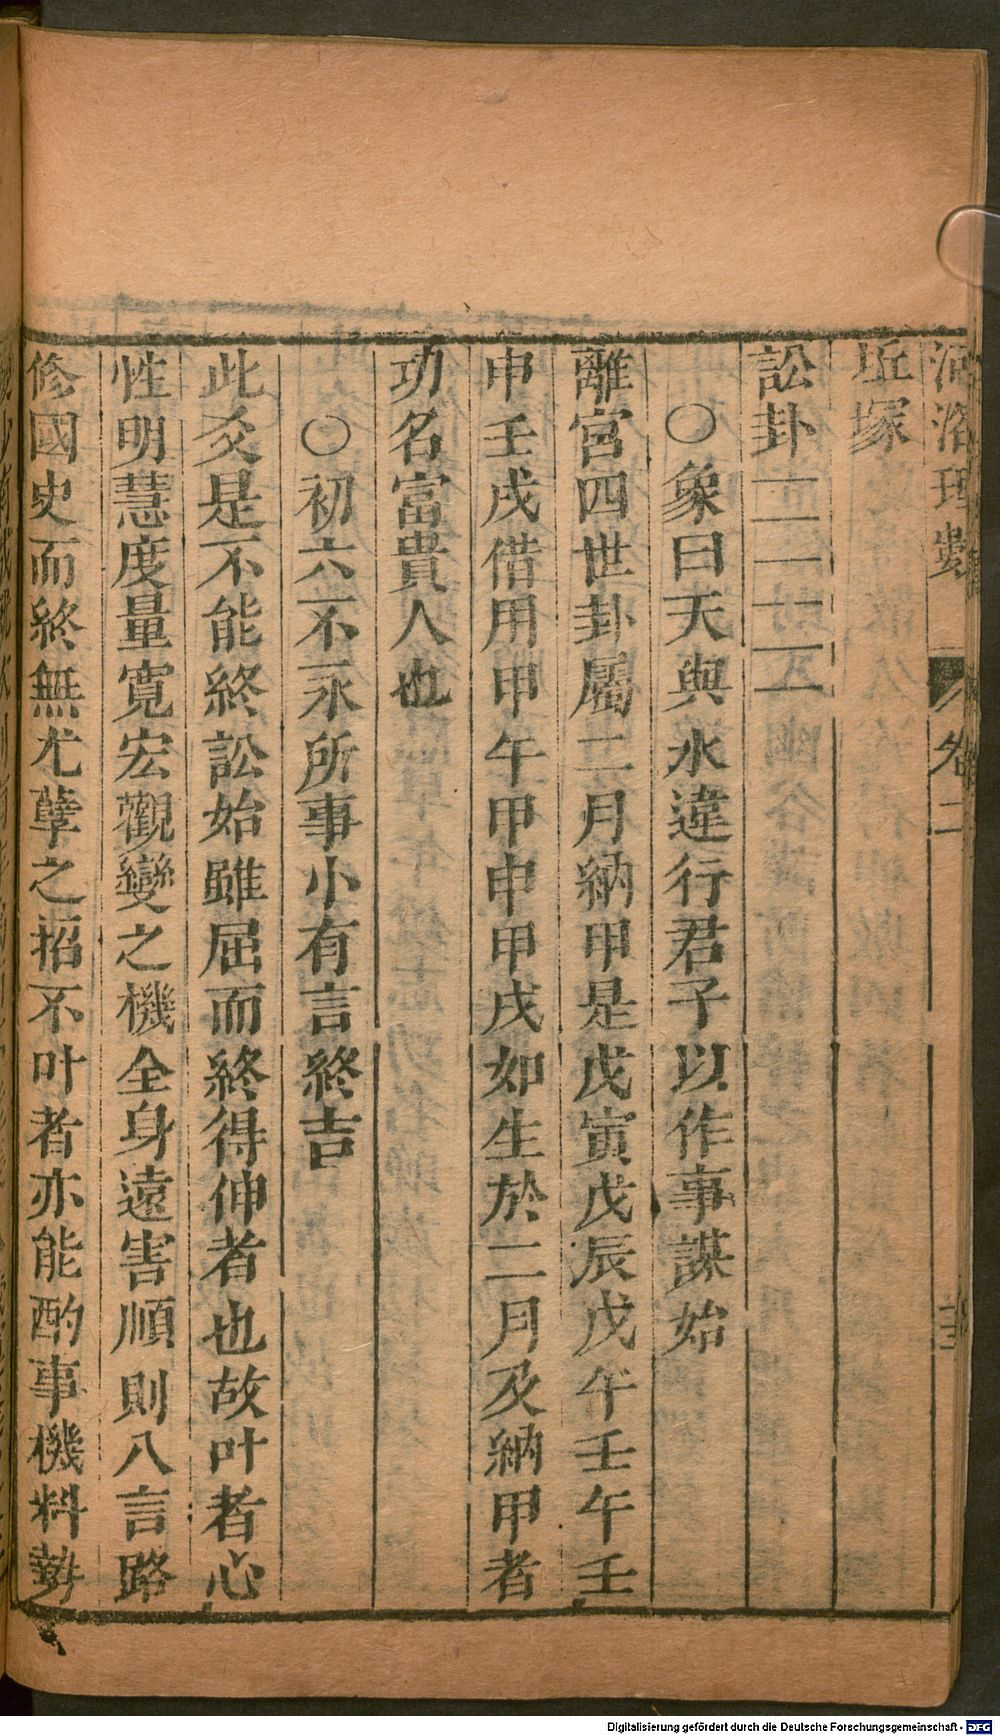 河洛理數 卷二 十三
丘塚
訟卦
○象曰天與水違行君子以作事謀始
離宮四世卦屬二月納甲是戊寅戊辰戊午壬午壬
申壬戌借用甲午甲申甲戌如生於二月及納甲者
功名富貴人也
○初六不永所事小有言終吉
此爻是不能終訟始雖屈而終得伸者也故叶者心
性明慧度量寬宏觀變之機全身遠害順則八言路
修國史而終無尤孽之招不叶者亦能酌事機料勢
Digitalisierung gefördert durch die Deutsche Forschungsgemeinschaft - DFG